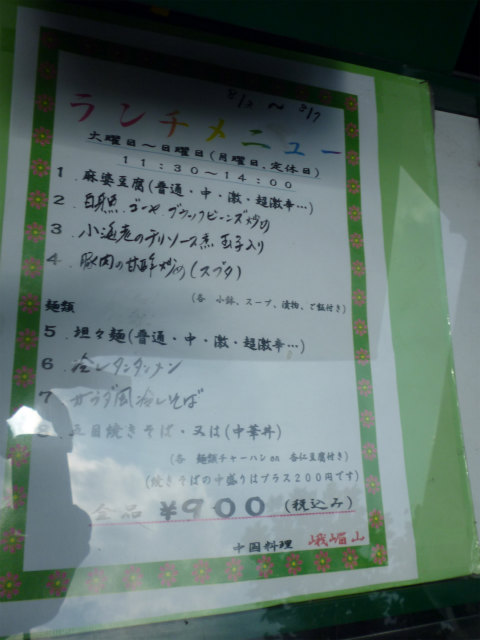 8/2 〜 8/7
ランチメニュー
火曜日〜日曜日(月曜日、定休日)
11:30〜14:00
1 麻婆豆腐(普通・中・激・超激辛…)
2 白身魚 ゴーヤ ブラックビーンズ炒め
3 小海老のチリソース煮 玉子入り
4 . 豚肉の甘酢炒め(スブタ)
(各 小鉢、スープ、漬物、ご飯付き)
麺類
5 . 坦々麺(普通・中・激・超激辛…)
6 . 冷しタンタンメン
7 . サラダ風冷しそば
8 . 五目焼きそば・又は(中華丼)
(各 麺類チャーハン on 杏仁豆腐付き)
(焼きそばの中盛りはプラス200円です)
全品 ¥900 (税込み)
中国料理 峨嵋山